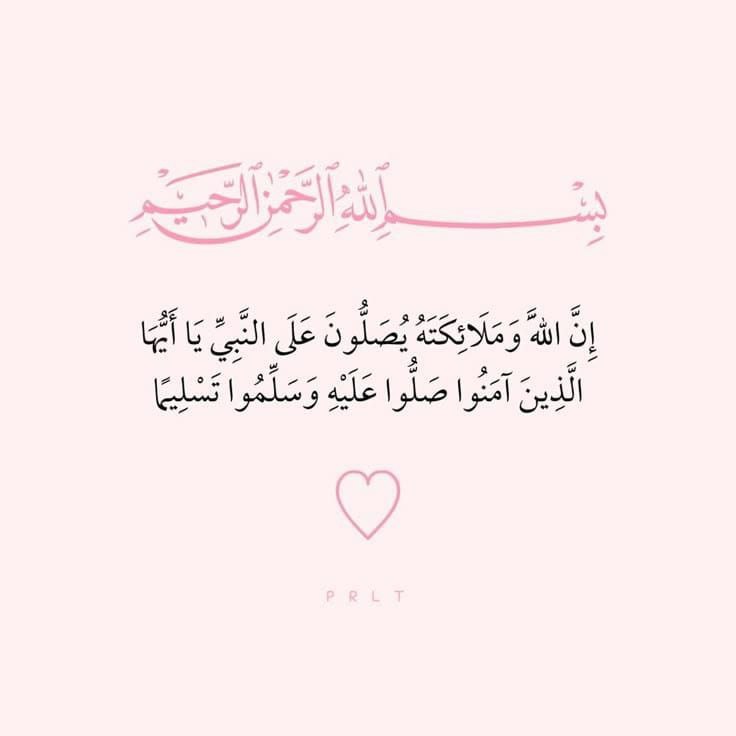 بِسْمِ ٱللَّٰهِ ٱلرَّحْمَٰنِ ٱلرَّحِيمِ
إِنَّ اللَّهَ وَمَلَائِكَتَهُ يُصَلُّونَ عَلَى النَّبِيِّ يَا أَيُّهَا
الَّذِينَ آمَنُوا صَلُّوا عَلَيْهِ وَسَلِّمُوا تَسْلِيمًا
PRLT